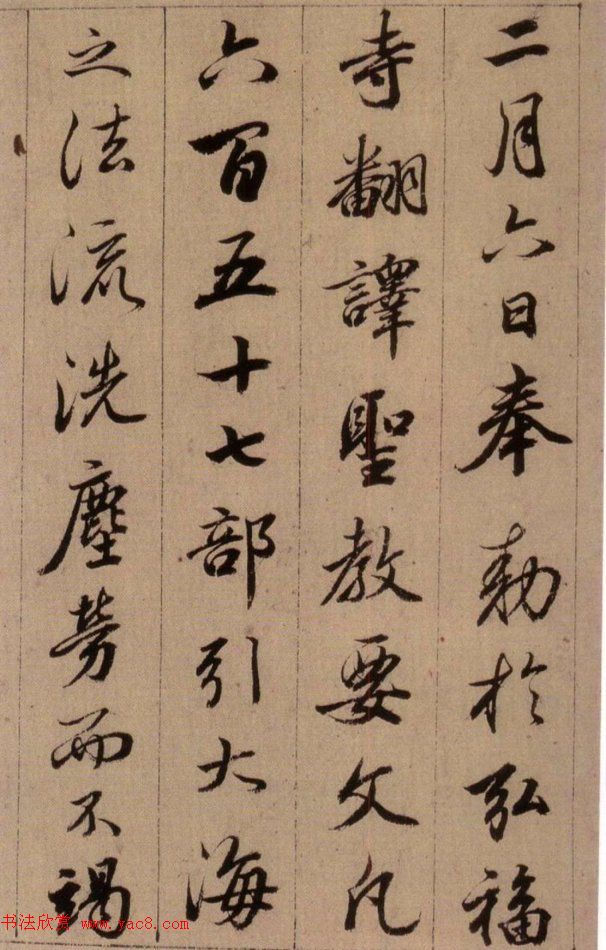 二月六日奉勅於弘福
寺翻譯聖教要文凡
六百五十七部引大海
之法流洗塵勞而不竭
书法欣赏 www.yac8.com